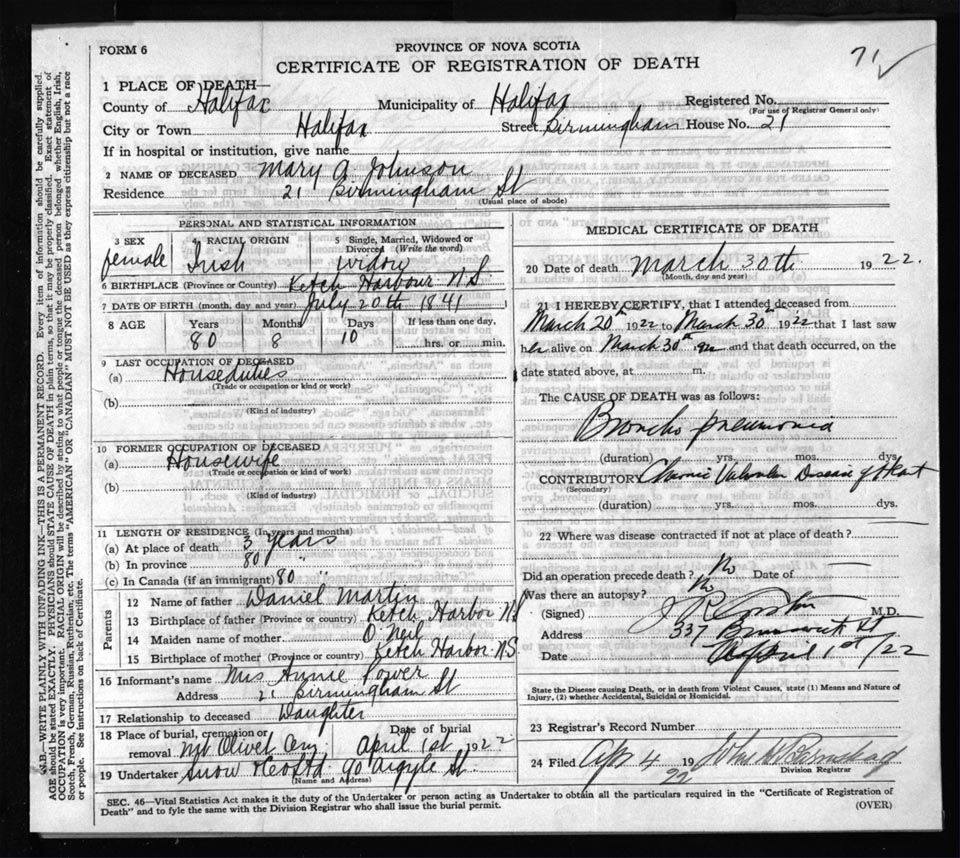 FORM 6
PROVINCE OF NOVA SCOTIA
CERTIFICATE OF REGISTRATION OF DEATH
71
1 PLACE OF DEATH—
County of Halifax Municipality of Halifax Registered No.
(For use of Registrar General only)
City or Town Halifax Street Birmingham House No. 21
If in hospital or institution, give name
2 NAME OF DECEASED Mary A Johnson
Residence 21 Birmingham St
(Usual place of abode)
PERSONAL AND STATISTICAL INFORMATION
3 SEX female
4 RACIAL ORIGIN Irish
5 Single, Married, Widowed or Divorced (Write the word) widow
6 BIRTHPLACE (Province or Country) Ketch Harbour N S
7 DATE OF BIRTH (month, day and year) July 20th 1841
8 AGE Years Months Days If less than one day,
80 8 10 hrs. or min.
9 LAST OCCUPATION OF DECEASED
(a) Houseduties
(Trade or occupation or kind or work)
(b)
(Kind of industry)
10 FORMER OCCUPATION OF DECEASED
(a) Housewife
(Trade or occupation or kind or work)
(b)
(Kind of industry)
11 LENGTH OF RESIDENCE (In years and months)
(a) At place of death 3 years
(b) In province 80 "
(c) In Canada (if an immigrant) 80 " "
Parents
12 Name of father Daniel Martin
13 Birthplace of father (Province or country) Ketch Harbor NS
14 Maiden name of mother O'Neil
15 Birthplace of mother (Province or country) Ketch Harbor NS
16 Informant's name Mrs Annie Power
Address 21 Birmingham St
17 Relationship to deceased Daughter
18 Place of burial, cremation or removal Mt Olivet Cem. Date of burial April 1st 1922
19 Undertaker Snow & Co Ltd 90 Argyle St.
(Name and Address)
MEDICAL CERTIFICATE OF DEATH
20 Date of death March 30th 1922.
(Month, day and year)
21 I HEREBY CERTIFY, that I attended deceased from
March 20th 1922 to March 30th 1922 that I last saw
her alive on March 30th 1922 and that death occurred, on the
date stated above, at m.
The CAUSE OF DEATH was as follows:
Broncho pneumonia
(duration) yrs. mos. dys.
CONTRIBUTORY Chronic Valvular Disease of Heart
(Secondary)
(duration) yrs. mos. dys.
22 Where was disease contracted if not at place of death?
Did an operation precede death? No Date of —
Was there an autopsy? No
(Signed) J R M.D.
Address 337 Brunswick St
Date April 1st/22
State the Disease causing Death, or in death from Violent Causes, state (1) Means and Nature of Injury, (2) whether Accidental, Suicidal or Homicidal.
23 Registrar's Record Number
24 Filed Apr 4 1922 John
Division Registrar
SEC. 46—Vital Statistics Act makes it the duty of the Undertaker or person acting as Undertaker to obtain all the particulars required in the "Certificate of Registration of
Death" and to fyle the same with the Division Registrar who shall issue the burial permit.
(OVER)
N.B.—WRITE PLAINLY WITH UNFADING INK—THIS IS A PERMANENT RECORD. Every item of information should be carefully supplied.
AGE should be stated EXACTLY. PHYSICIANS should STATE CAUSE OF DEATH in plain terms, so that it may be properly classified. Exact statement of
OCCUPATION is very important. RACIAL ORIGIN will be described by stating to what people or tongue the deceased person belonged whether English, Irish,
Scotch, French, German, Russian, Ruthenian, etc. The terms "AMERICAN" or "CANADIAN" MUST NOT BE USED as they express citizenship but not a race
or people. See instructions on back of Certificate.